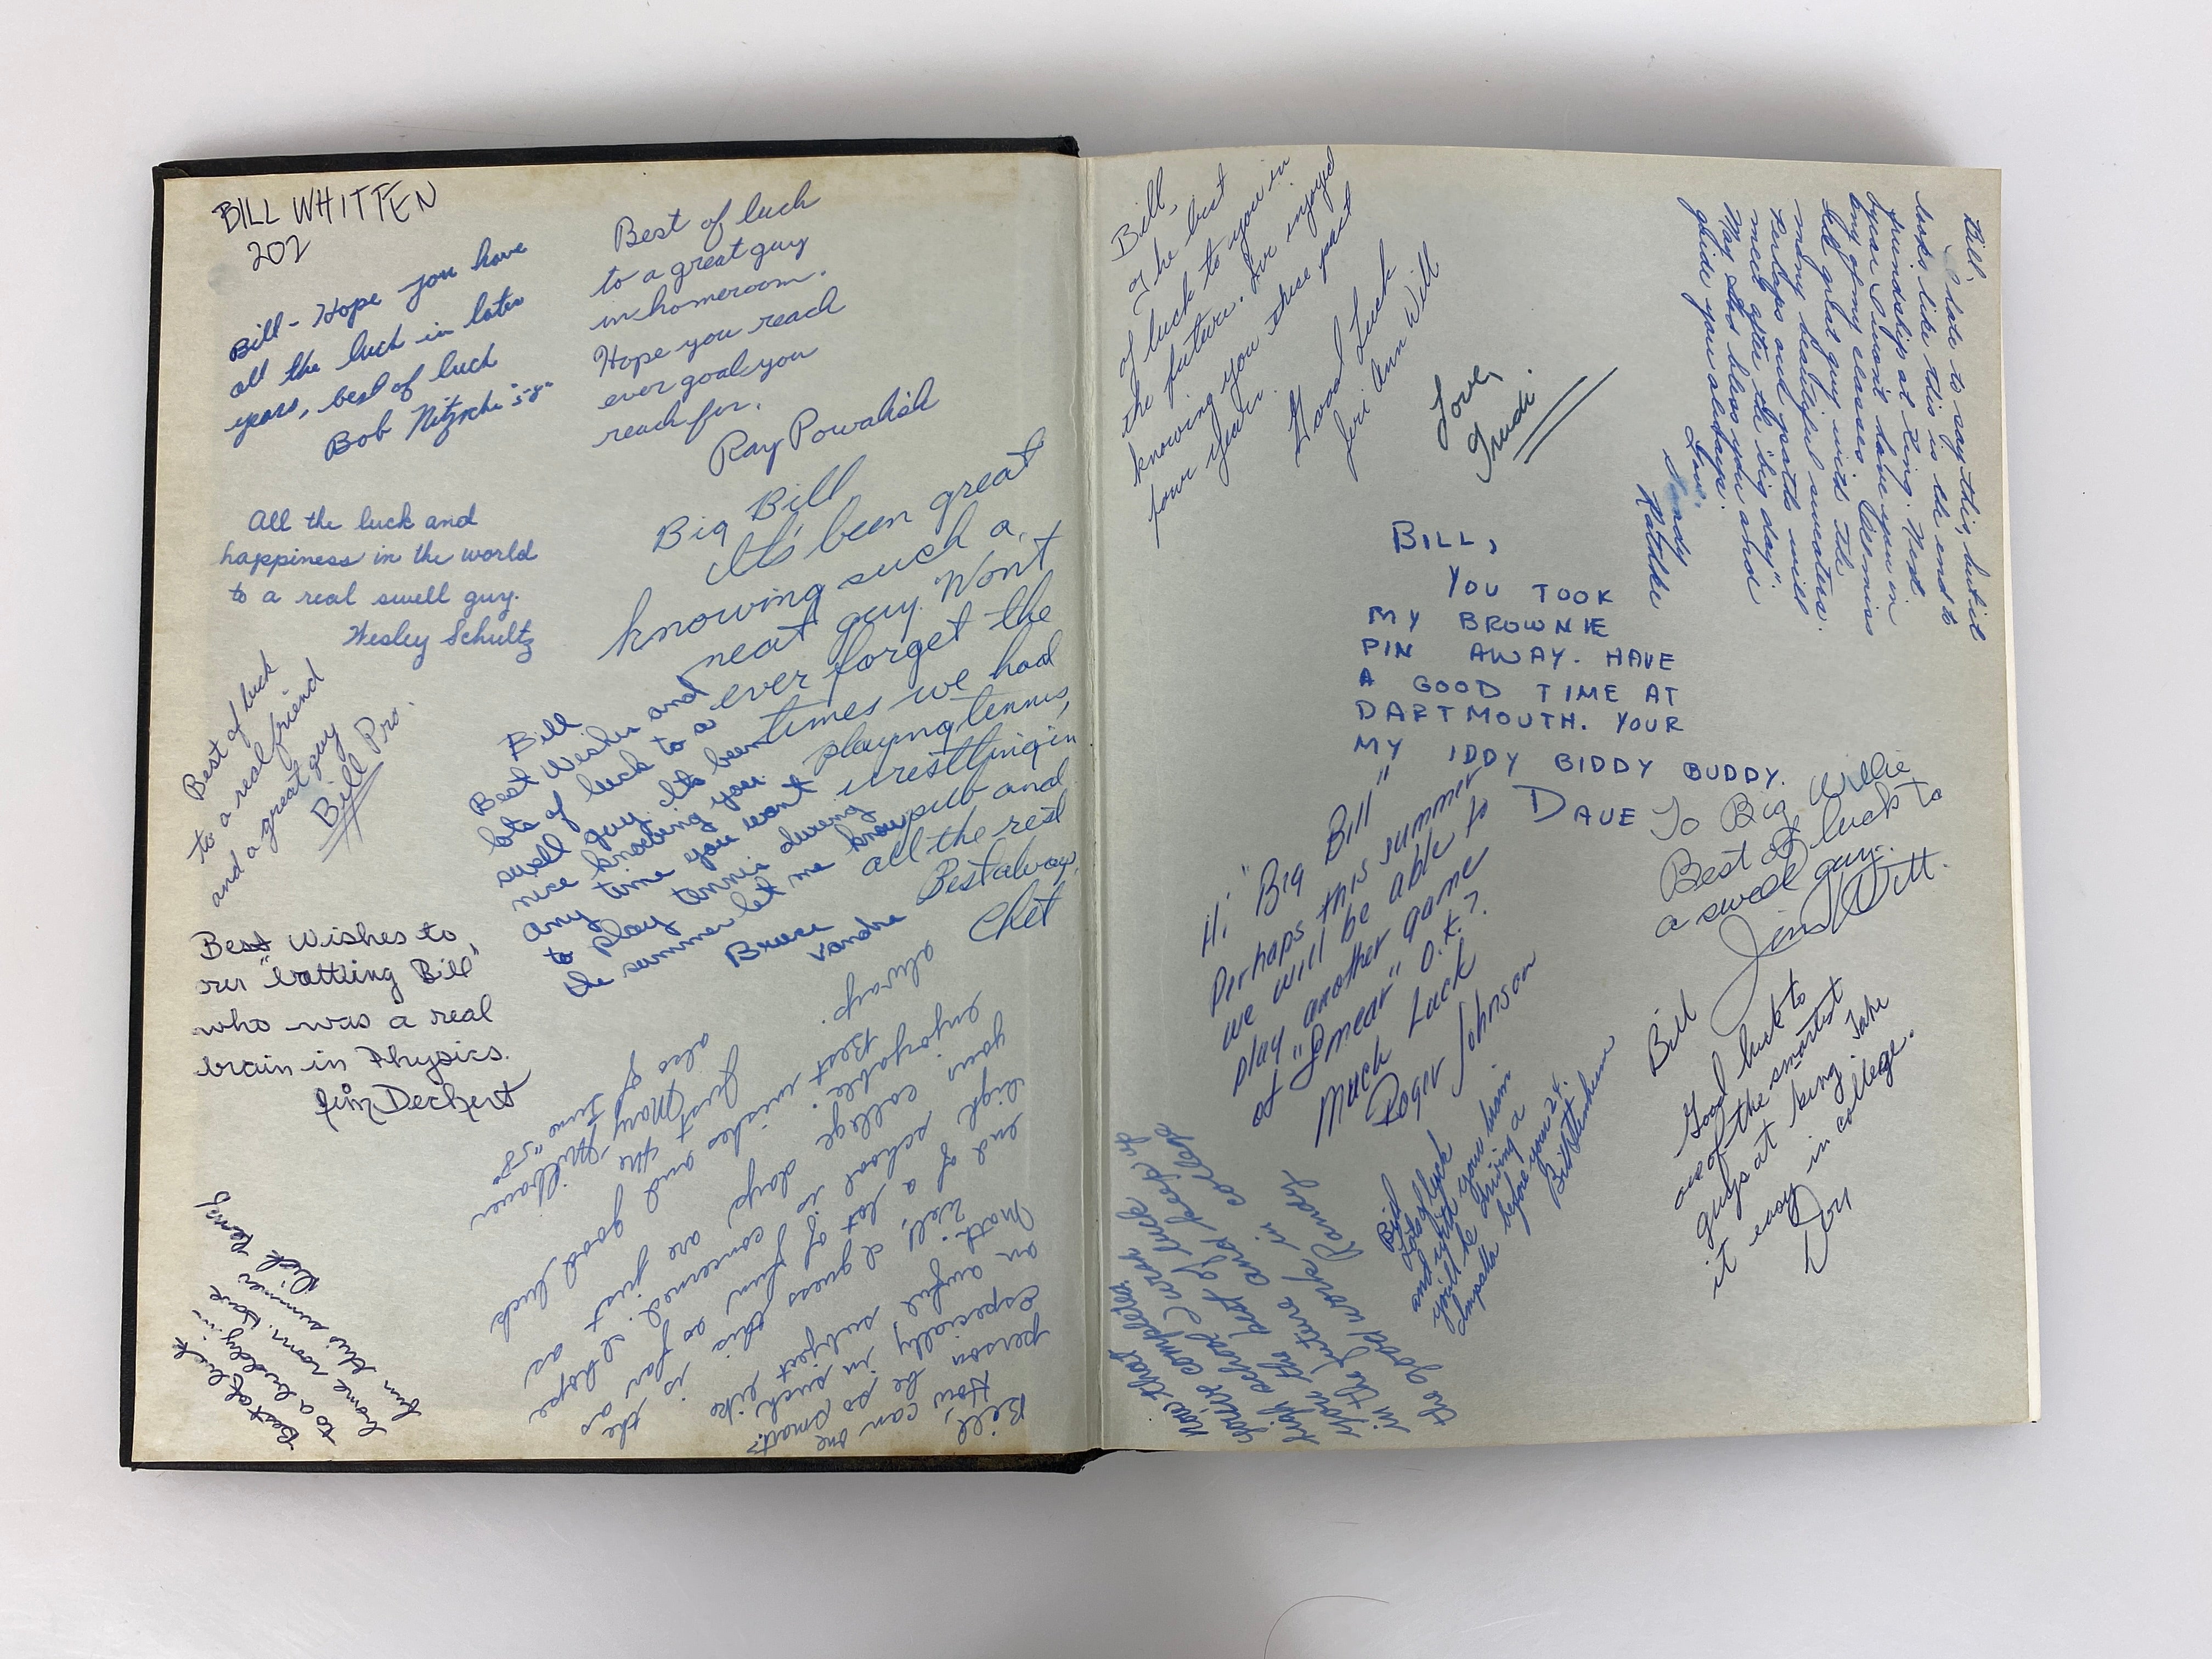 BILL WHITTEN
202
Bill - Hope you have
all the luck in later
years, best of luck
Bob Nitzsche "58"
Best of luck
to a great guy
in homeroom.
Hope you reach
ever goal you
reach for.
Ray Powalish
All the luck and
happiness in the world
to a real swell guy.
Wesley Schultz
Big Bill
It's been great
knowing such a
neat guy. Wont
ever forget the
times we had
playing tennis,
wrestling in
pub and
all the rest
Best always
Chet
Best of luck
to a real friend
and a great guy
Bill Pro.
Bill
Best Wishes and
lots of luck to a
swell guy. Its been
nice knowing you.
any time you want
to play tennis during
the summer let me know
Bruce
Vandre
Best Wishes to
our "battling Bill",
who was a real
brain in Physics.
Jim Deckert
Bill,
How can one
person be so smart?
Especially in
an awful subject like
Math. Well, I guess this is the
end of a lot of fun as far as
high school is concerned. I hope
your college days are just as
enjoyable. Best wishes and good luck
always.
Just
Mary
also of June "58"
Best of luck
to a buddy in
home room. Have
fun this summer
Rick
Bill,
The best
of luck to you in
the future. I've enjoyed
knowing you these past
four years.
Good Luck
Jeri Ann Will
Love,
Trudi.
Bill,
I hate to say this, but it
looks like this is the end to
friendship at King. Next
year I won't have you in
any of my classes. I'll miss
that great guy with the
many beautiful sweaters.
Perhaps our paths will
meet after the "big day".
May God bless you and
guide you always.
Love,
Sandy
Rathke
BILL,
YOU TOOK
MY BROWNIE
PIN AWAY. HAVE
A GOOD TIME AT
DARTMOUTH. YOUR
MY IDDY BIDDY BUDDY.
DAVE
To Big Willie
Best of luck to
a swell guy.
Jim Witt.
Hi "Big Bill"
Perhaps this summer
we will be able to
play another game
of "Smear" O.K.?
Much Luck
Roger Johnson
Bill
Good luck to
one of the smartest
guys at King. Take
it easy in college.
Don
Bill
Lots of luck
and with your brain
you'll be driving a
Impalla before your 24.
Bill
Now that
you've completed
high school I wish
you the best of luck
in the future and keep up
the good work in college
Randy